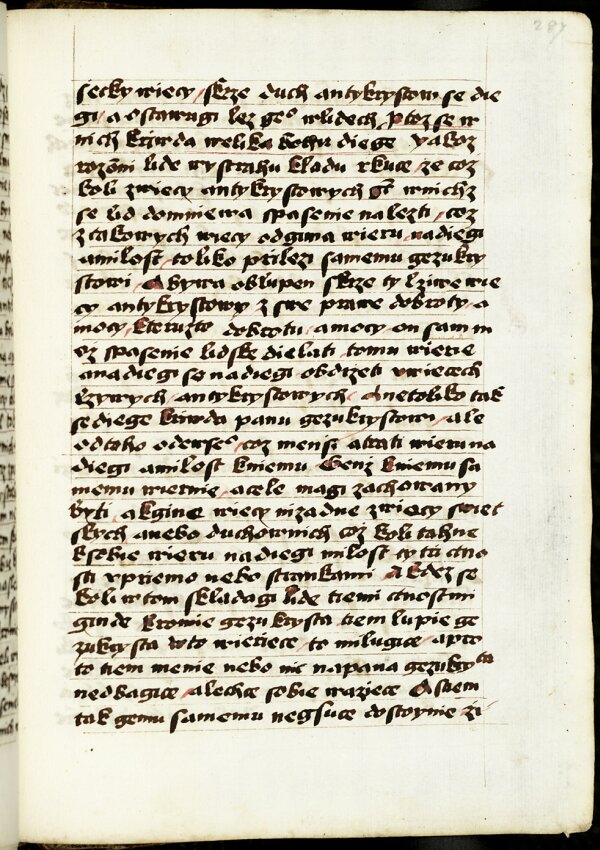 287
secky wiecy skrze duch antykrystow se die
gi a ostawugi lez geo w lidech Protoz se w
nich kriwda welika bohu diege yakoz
rozomi lide wystrahu kladu rkuce ze coz
koli z wiecy antykrystowych gt w nichz
se lid domniewa spasenie nalezti coz
z takowych wiecy odgima wieru nadiegi
a milost toliko prilezi samemu gezukry
stowi A bywa oblupen skrze ty lziwe wie
cy antykrystowy z swe prawe dobroty a
mocy kteruzto dobrotu a mocy on sam m
oz spasenie lidske dielati tomu wierie
a nadiegi se nadiegi obdrzeti w wiecech
lzywych antykrystowych A netoliko tak
se diege kriwda panu gezukrystowi ale
od toho odewseo coz mensi a trati wieru na
diegi a milost k niemu Genz k niemu sa
memu wiernie a cele magi zachowany
byti a k gine wiecy nizadne z wiecy swiet
skych anebo duchownich coz koli tahne
k sobie wieru nadiegi milost ty tri ctno
sti vpriemo nebo strankami A kdez se
koli w tom skladagi lide tiemi ctnostmi
ginde kromie gezukrysta tiem lupie ge
zukrysta w to wieriece to milugice a pro
to tiem menie nebo nic na pana gezukrysta
nedbagice a lechce sobie wazjece A s tiem
tak gemu samemu negsuce dostoynie zi